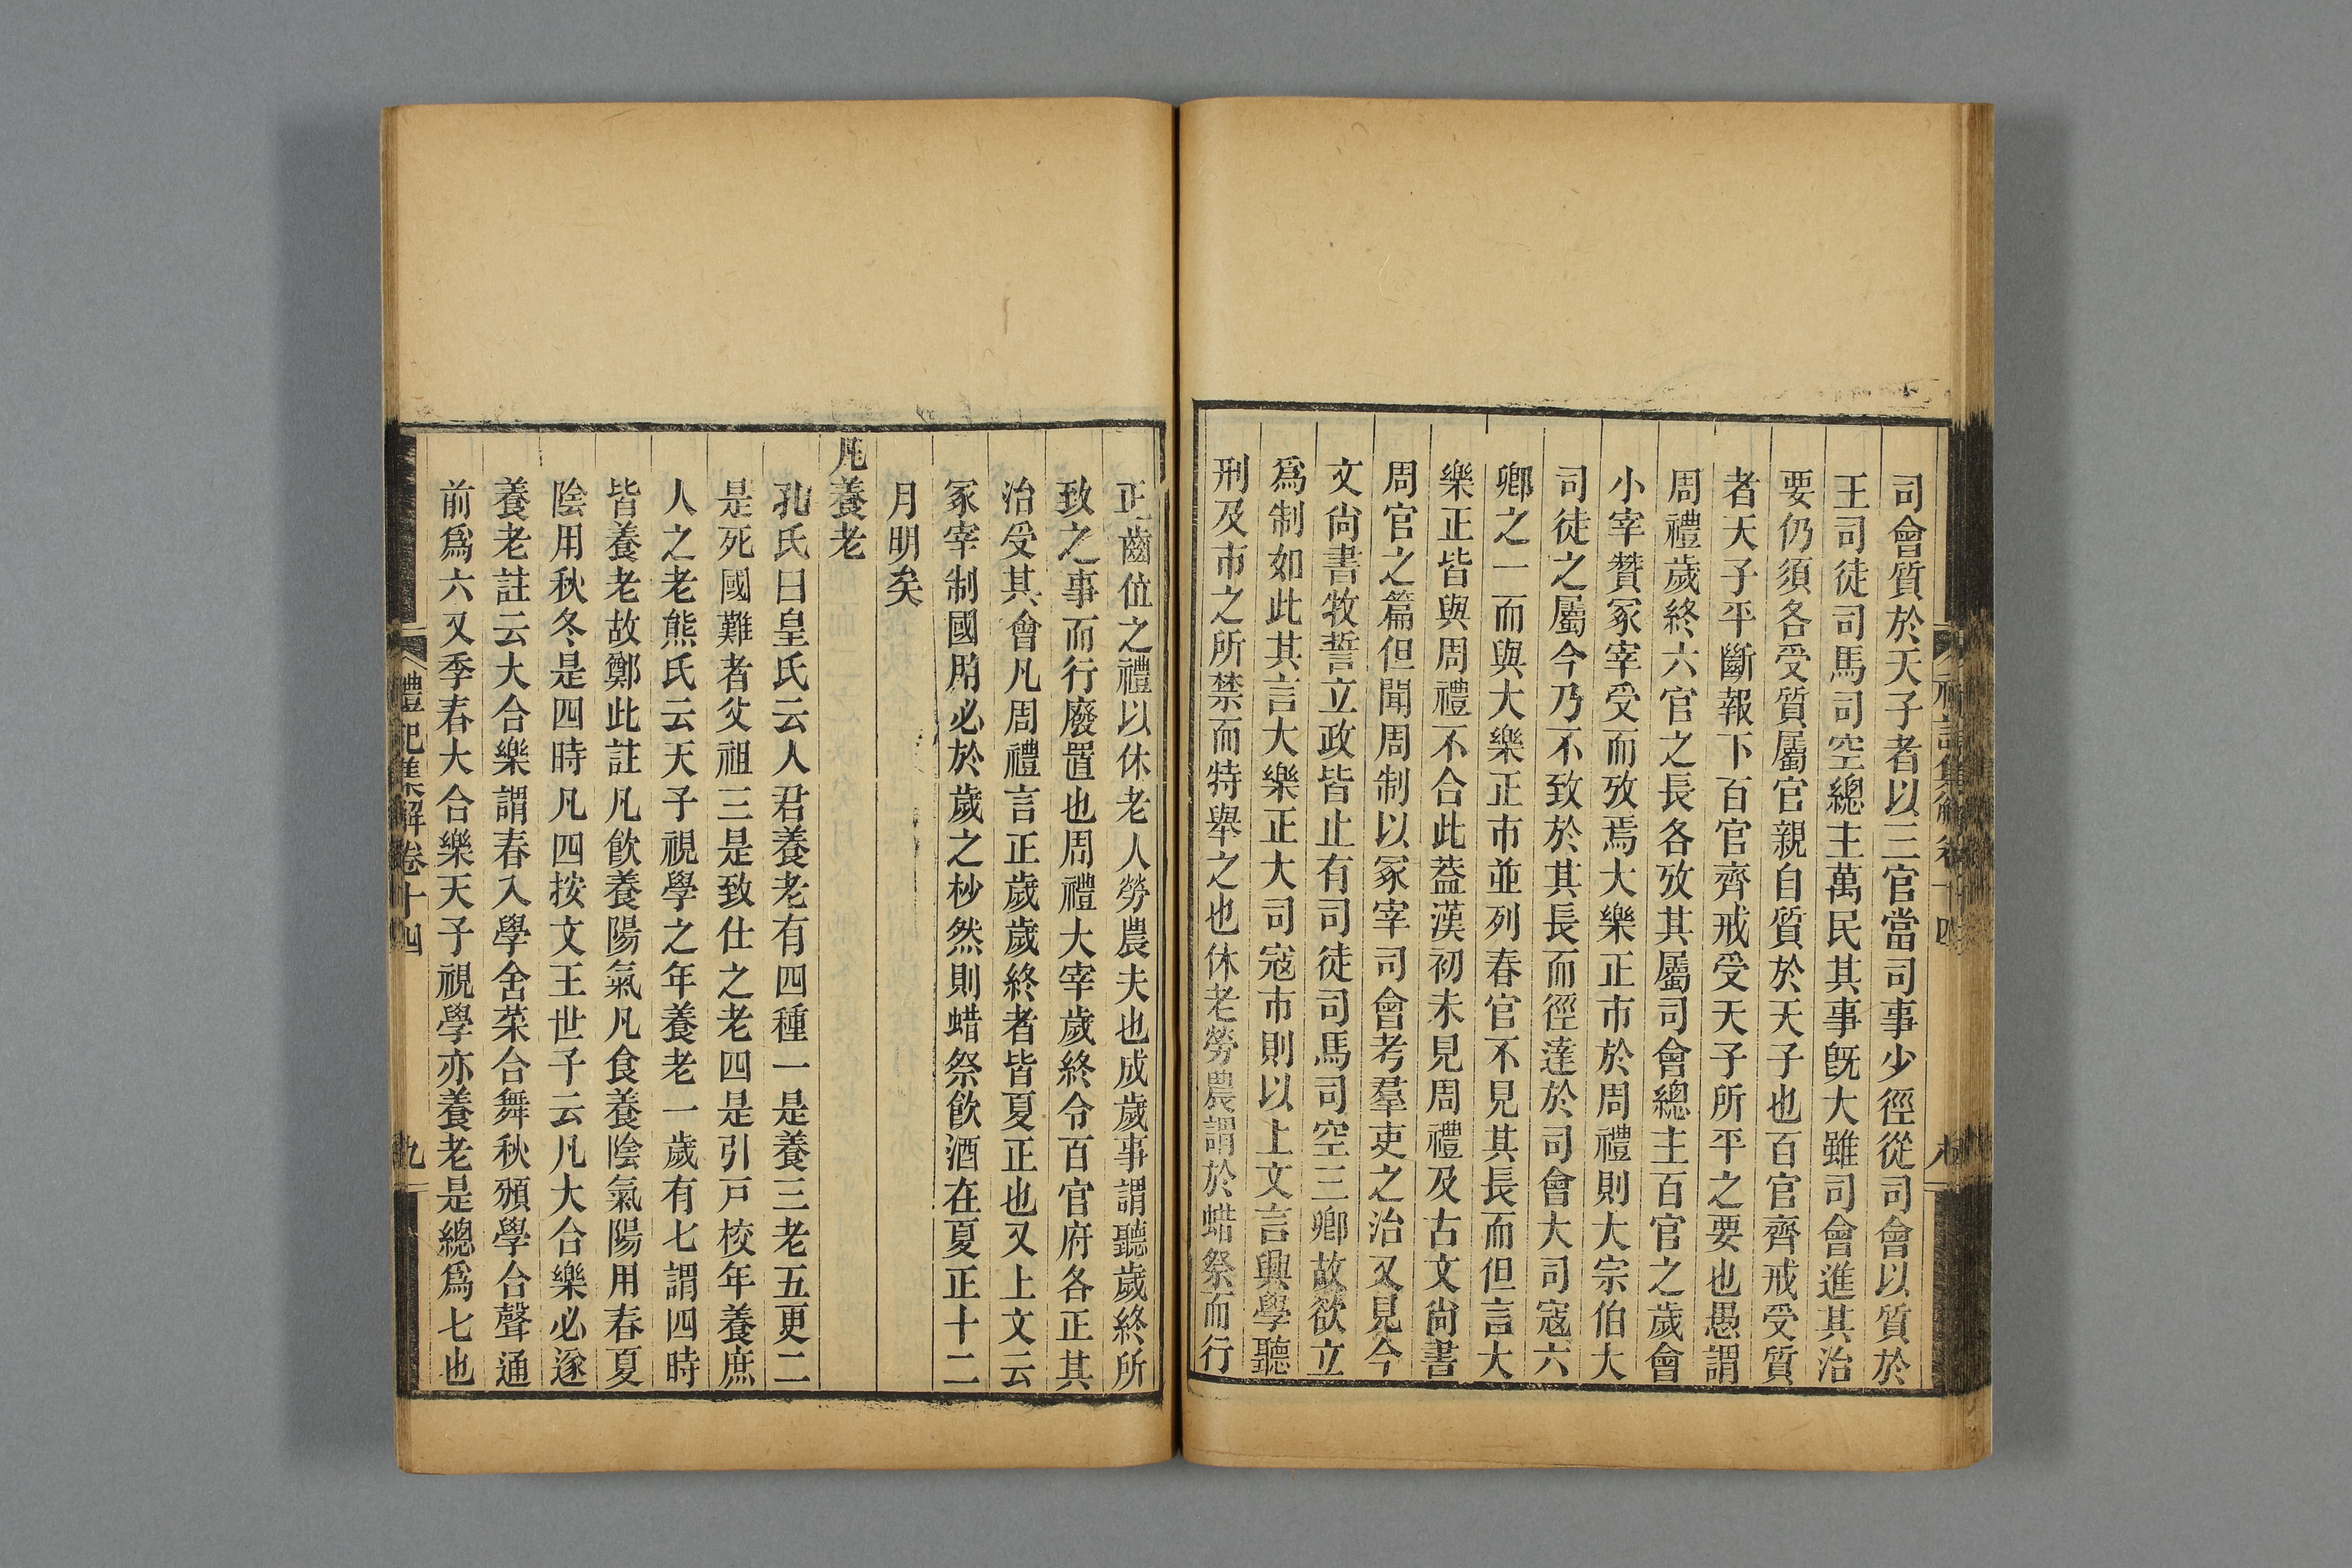 司會質於天子者以三官當司事少徑從司會以質於
王司徒司馬司空總主萬民其事旣大雖司會進其治
要仍須各受質屬官親自質於天子也百官齊戒受質
者天子平斷報下百官齊戒受天子所平之要也愚謂
周禮歲終六官之長各攷其屬司會總主百官之歲會
小宰贊冢宰受而攷焉大樂正市於周禮則大宗伯大
司徒之屬今乃不致於其長而徑達於司會大司寇六
卿之一而與大樂正市並列春官不見其長而但言大
樂正皆與周禮不合此葢漢初未見周禮及古文尙書
周官之篇但聞周制以冢宰司會考羣吏之治又見今
文尙書牧誓立政皆止有司徒司馬司空三卿故欲立
爲制如此其言大樂正大司寇市則以上文言興學聽
刑及市之所禁而特舉之也休老勞農謂於蜡祭而行
正齒位之禮以休老人勞農夫也成歲事謂聽歲終所
致之事而行廢置也周禮大宰歲終令百官府各正其
治受其會凡周禮言正歲歲終者皆夏正也又上文云
冢宰制國用必於歲之杪然則蜡祭飮酒在夏正十二
月明矣
凡養老
孔氏曰皇氏云人君養老有四種一是養三老五更二
是死國難者父祖三是致仕之老四是引戸校年養庶
人之老熊氏云天子視學之年養老一歲有七謂四時
皆養老故鄭此註凡飮養陽氣凡食養陰氣陽用春夏
陰用秋冬是四時凡四按文王世子云凡大合樂必遂
養老註云大合樂謂春入學舍菜合舞秋頒學合聲通
前爲六又季春大合樂天子視學亦養老是總爲七也
禮記集解卷十四
九